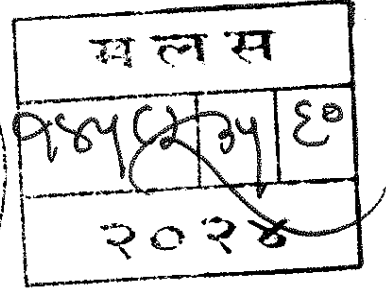 म ल स
१४५८२ ३५ ६०
२०२४